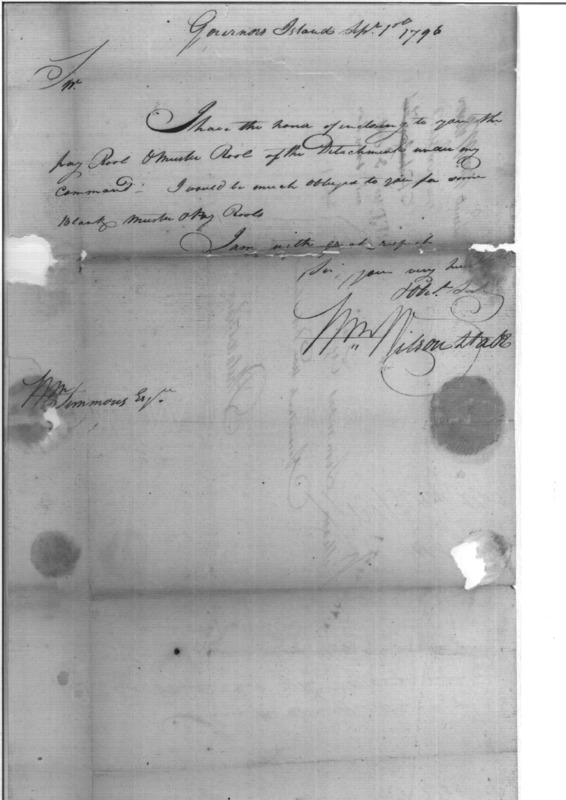 Governors Island Sepr. 1st 1796
Sir
I have the honor of inclosing to you the
pay Rool & Muster Rool of the Detachment under my
Command. I would be much obliged to you for some
Blank Muster & Pay Rools
I am with great respect
Sir, your very hu
Obt. Ser
Wm. Wilson Lt a&E
Wm. Simmons Esqr.